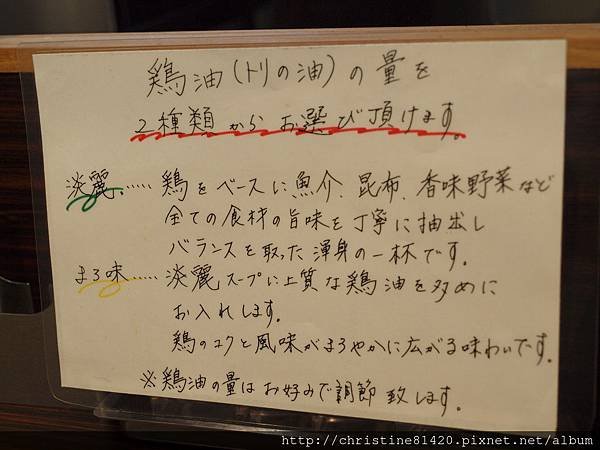 鶏油(トリの油)の量を
2種類からお選び頂けます。
淡麗......鶏をベースに魚介、昆布、香味野菜など
全ての食材の旨味を丁寧に抽出し
バランスを取った渾身の一杯です。
まろ味......淡麗スープに上質な鶏油を多めに
お入れします。
鶏のコクと風味がまろやかに広がる味わいです。
※鶏油の量はお好みで調節致します。
http://christine81420.pixnet.net/album